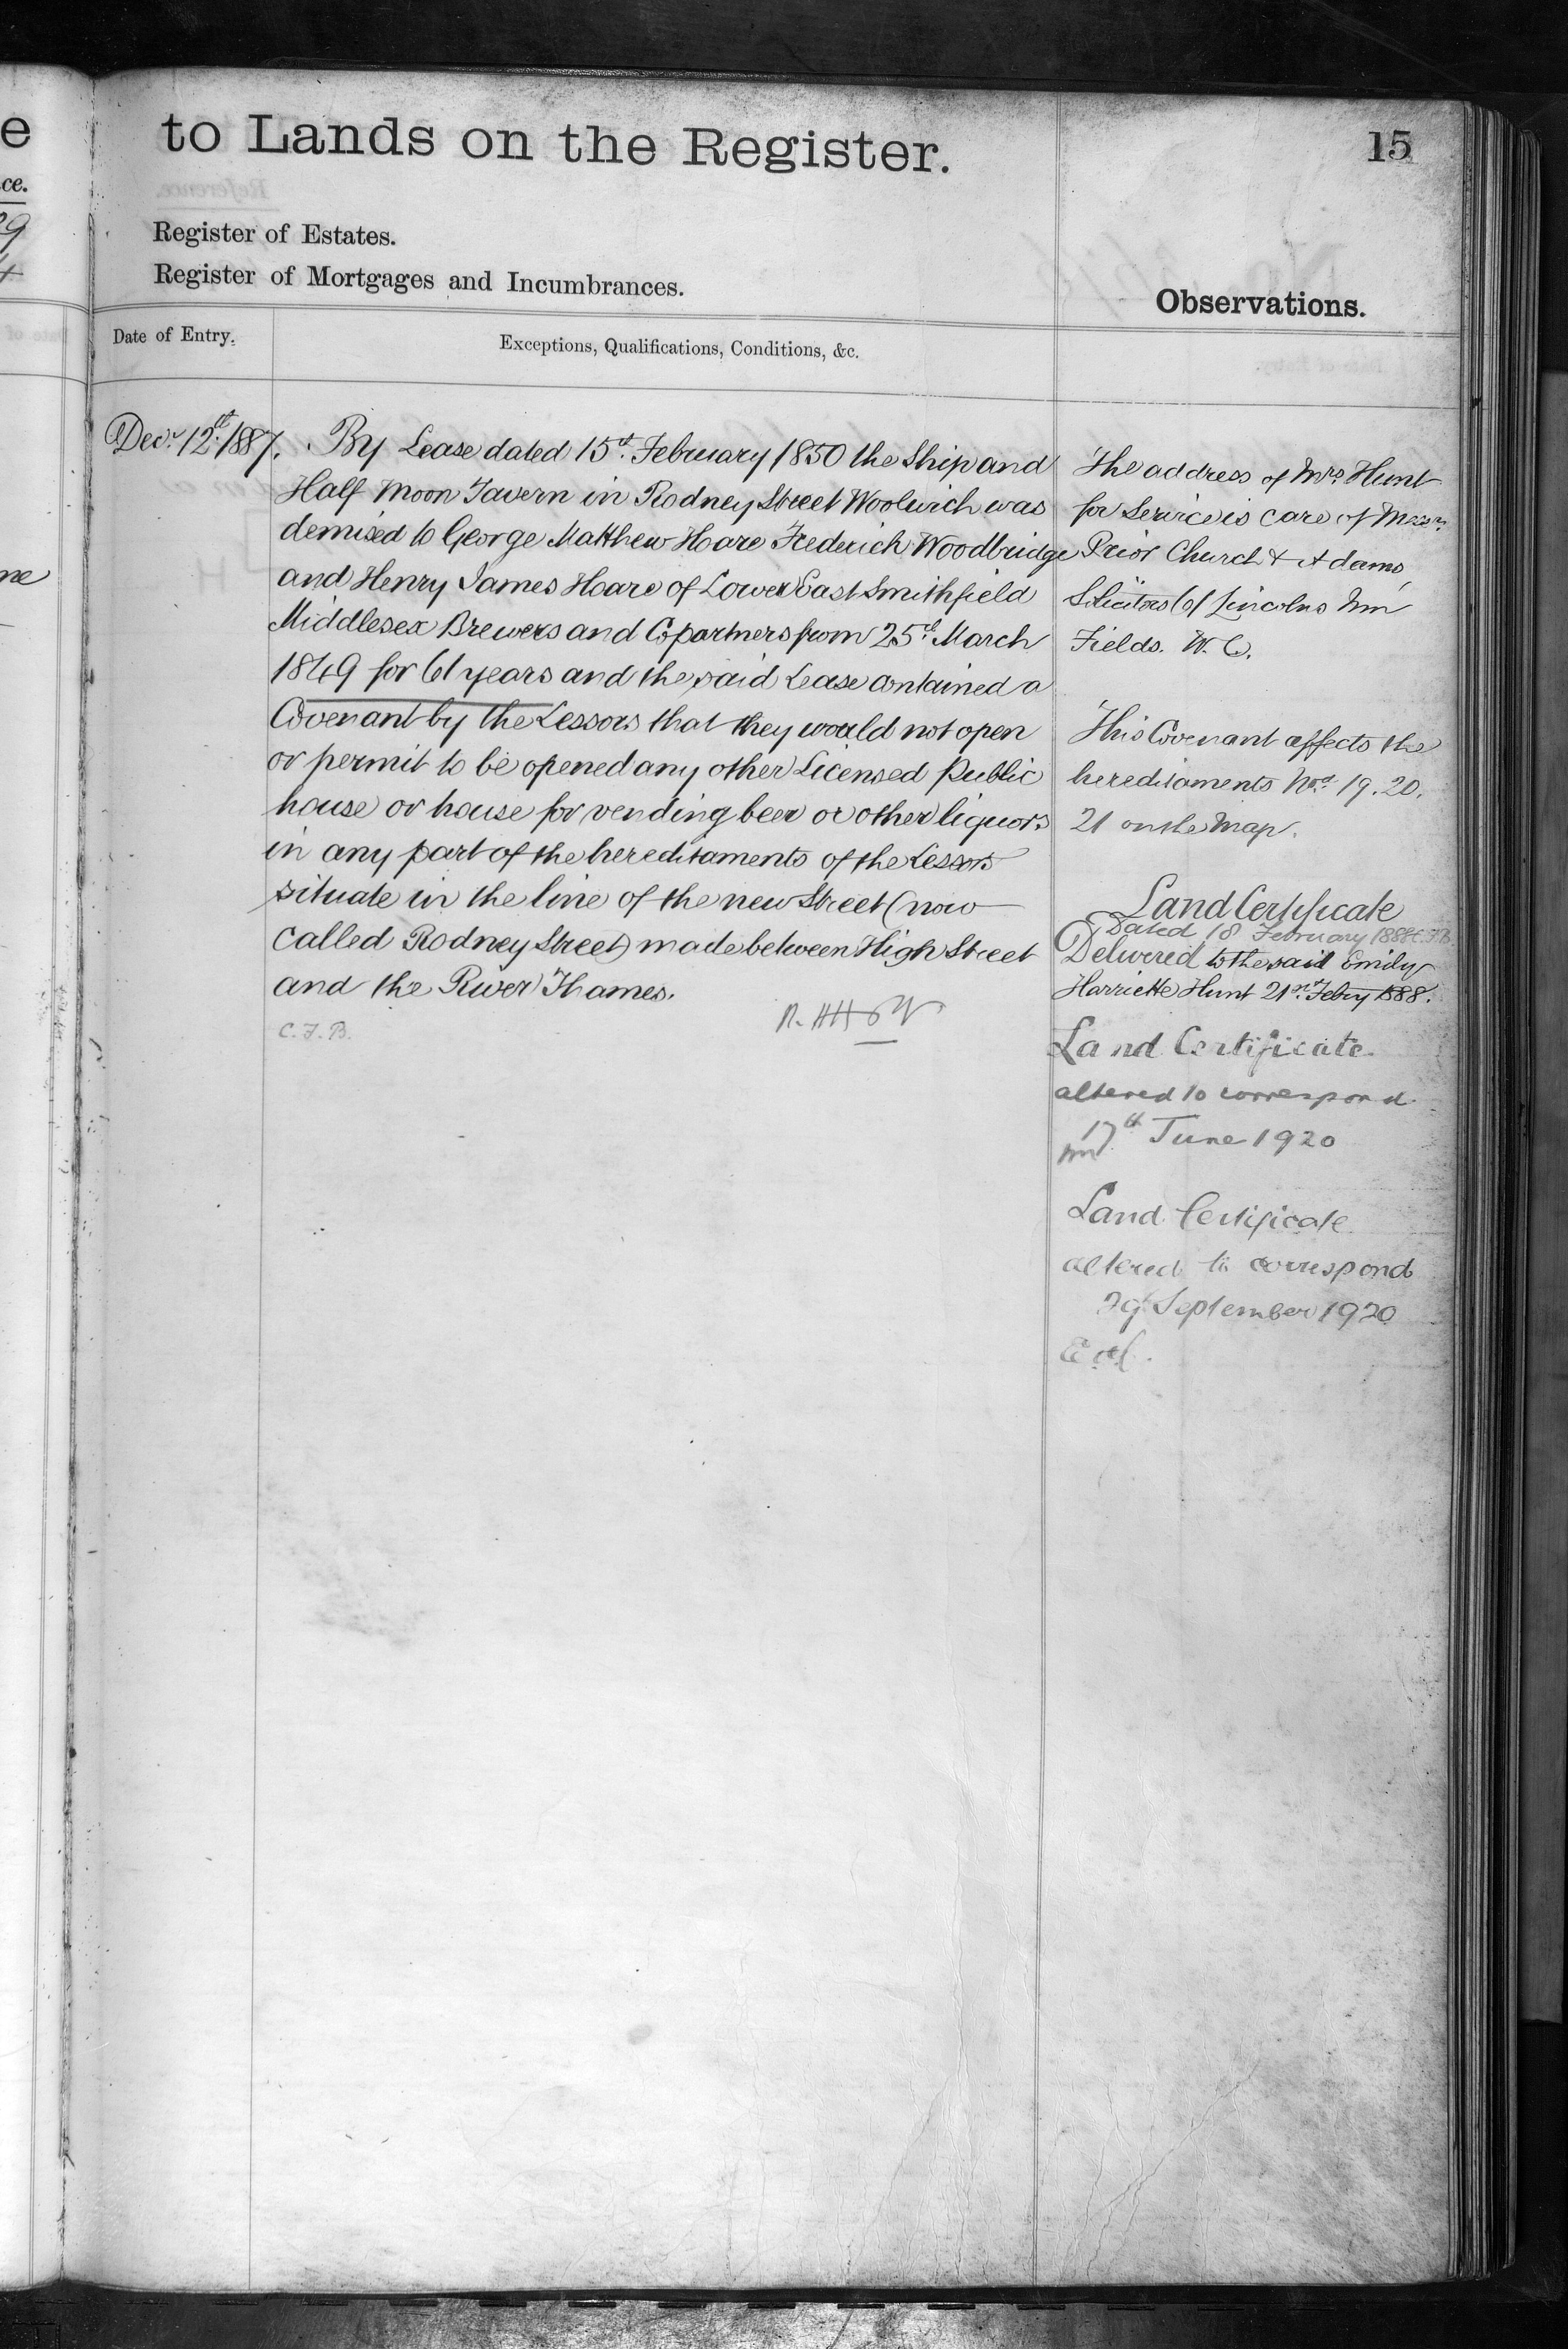 to Lands on the Register.
15
Register of Estates.
Register of Mortgages and Incumbrances.
Observations.
Date of Entry.
Exceptions, Qualifications, Conditions, &c.
Decr 12th 1887.
By Lease dated 15th February 1850 the Ship and
Half Moon Tavern in Rodney Street Woolwich was
demised to George Matthew Hoare Frederick Woodbridge
and Henry James Hoare of Lower East Smithfield
Middlesex Brewers and Copartners from 25th March
1849 for 61 years and the said Lease contained a
Covenant by the Lessors that they would not open
or permit to be opened any other Licensed Public
house or house for vending beer or other liquors
in any part of the hereditaments of the Lessors
situate in the line of the new Street (now
called Rodney Street) made between High Street
and the River Thames.
C. F. B.
The address of Mrs Hunt
for Service is care of Messrs
Prior Church & Adams
Solicitors of Lincolns Inn
Fields. W. C.
This Covenant affects the
hereditaments Nos 19. 20.
21 on the Map.
Land Certificate
Dated 18 February 1888 C.F.B.
Delivered to the said Emily
Harriette Hunt 21st Febry 1888.
Land Certificate
altered to correspond
17th June 1920
Land Certificate
altered to correspond
29th September 1920